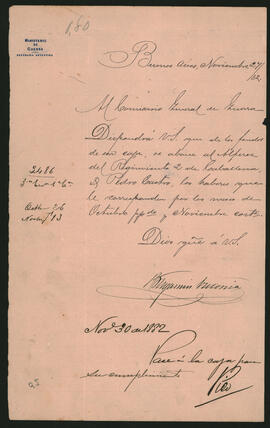 1,80
MINISTERIO
DE
GUERRA
REPÚBLICA ARGENTINA
Buenos Aires, Noviembre 27/82.
Al Comisario General de Guerra
Dispondrá V.S. que de los fondos
de esa caja, se abone al Alferez
del Regimiento 2 de Caballería
D. Pedro Castro, los haberes que le
corresponden por los meses de
Octubre ppdo y Noviembre corte.
Dios gue á V.S.
2486
Nov. 30 de 1882
Pase á la caja para
su cumplimiento